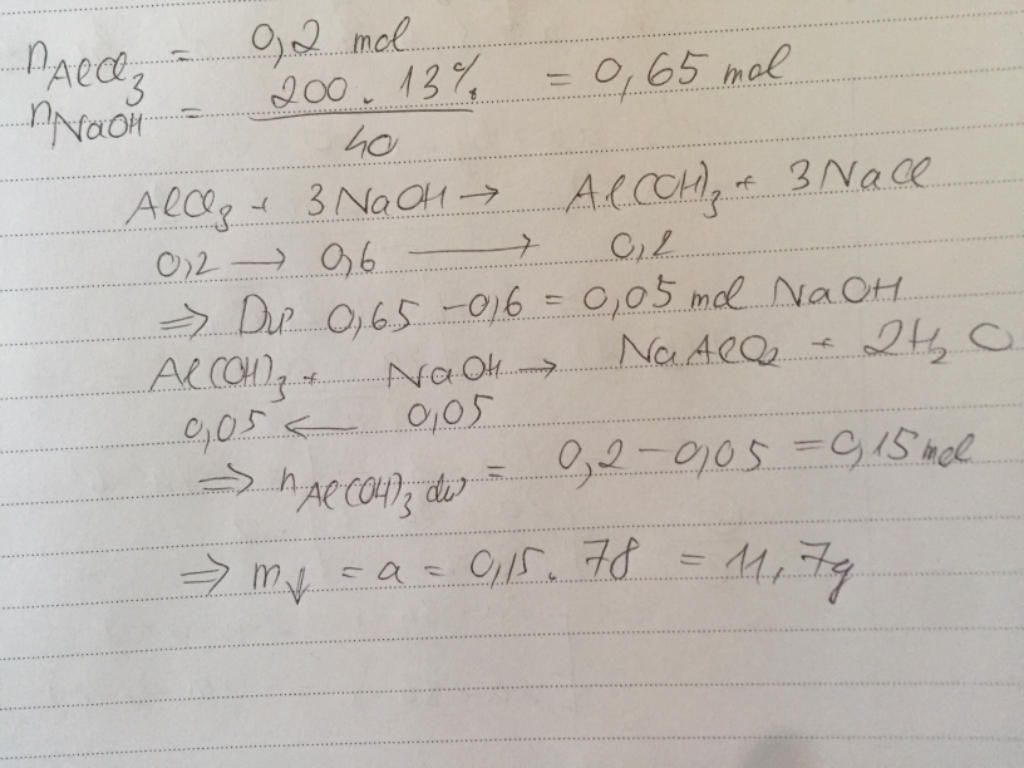 nAlCl₃ = 0,2 mol
nNaOH = 200 . 13% / 40 = 0,65 mol
AlCl₃ + 3NaOH → Al(OH)₃ + 3NaCl
0,2 → 0,6 ⟶ 0,2
⇒ Dư 0,65 - 0,6 = 0,05 mol NaOH
Al(OH)₃ + NaOH → NaAlO₂ + 2H₂O
0,05 ← 0,05
⇒ nAl(OH)₃ dư = 0,2 - 0,05 = 0,15 mol
⇒ m↓ = a = 0,15 . 78 = 11,7g